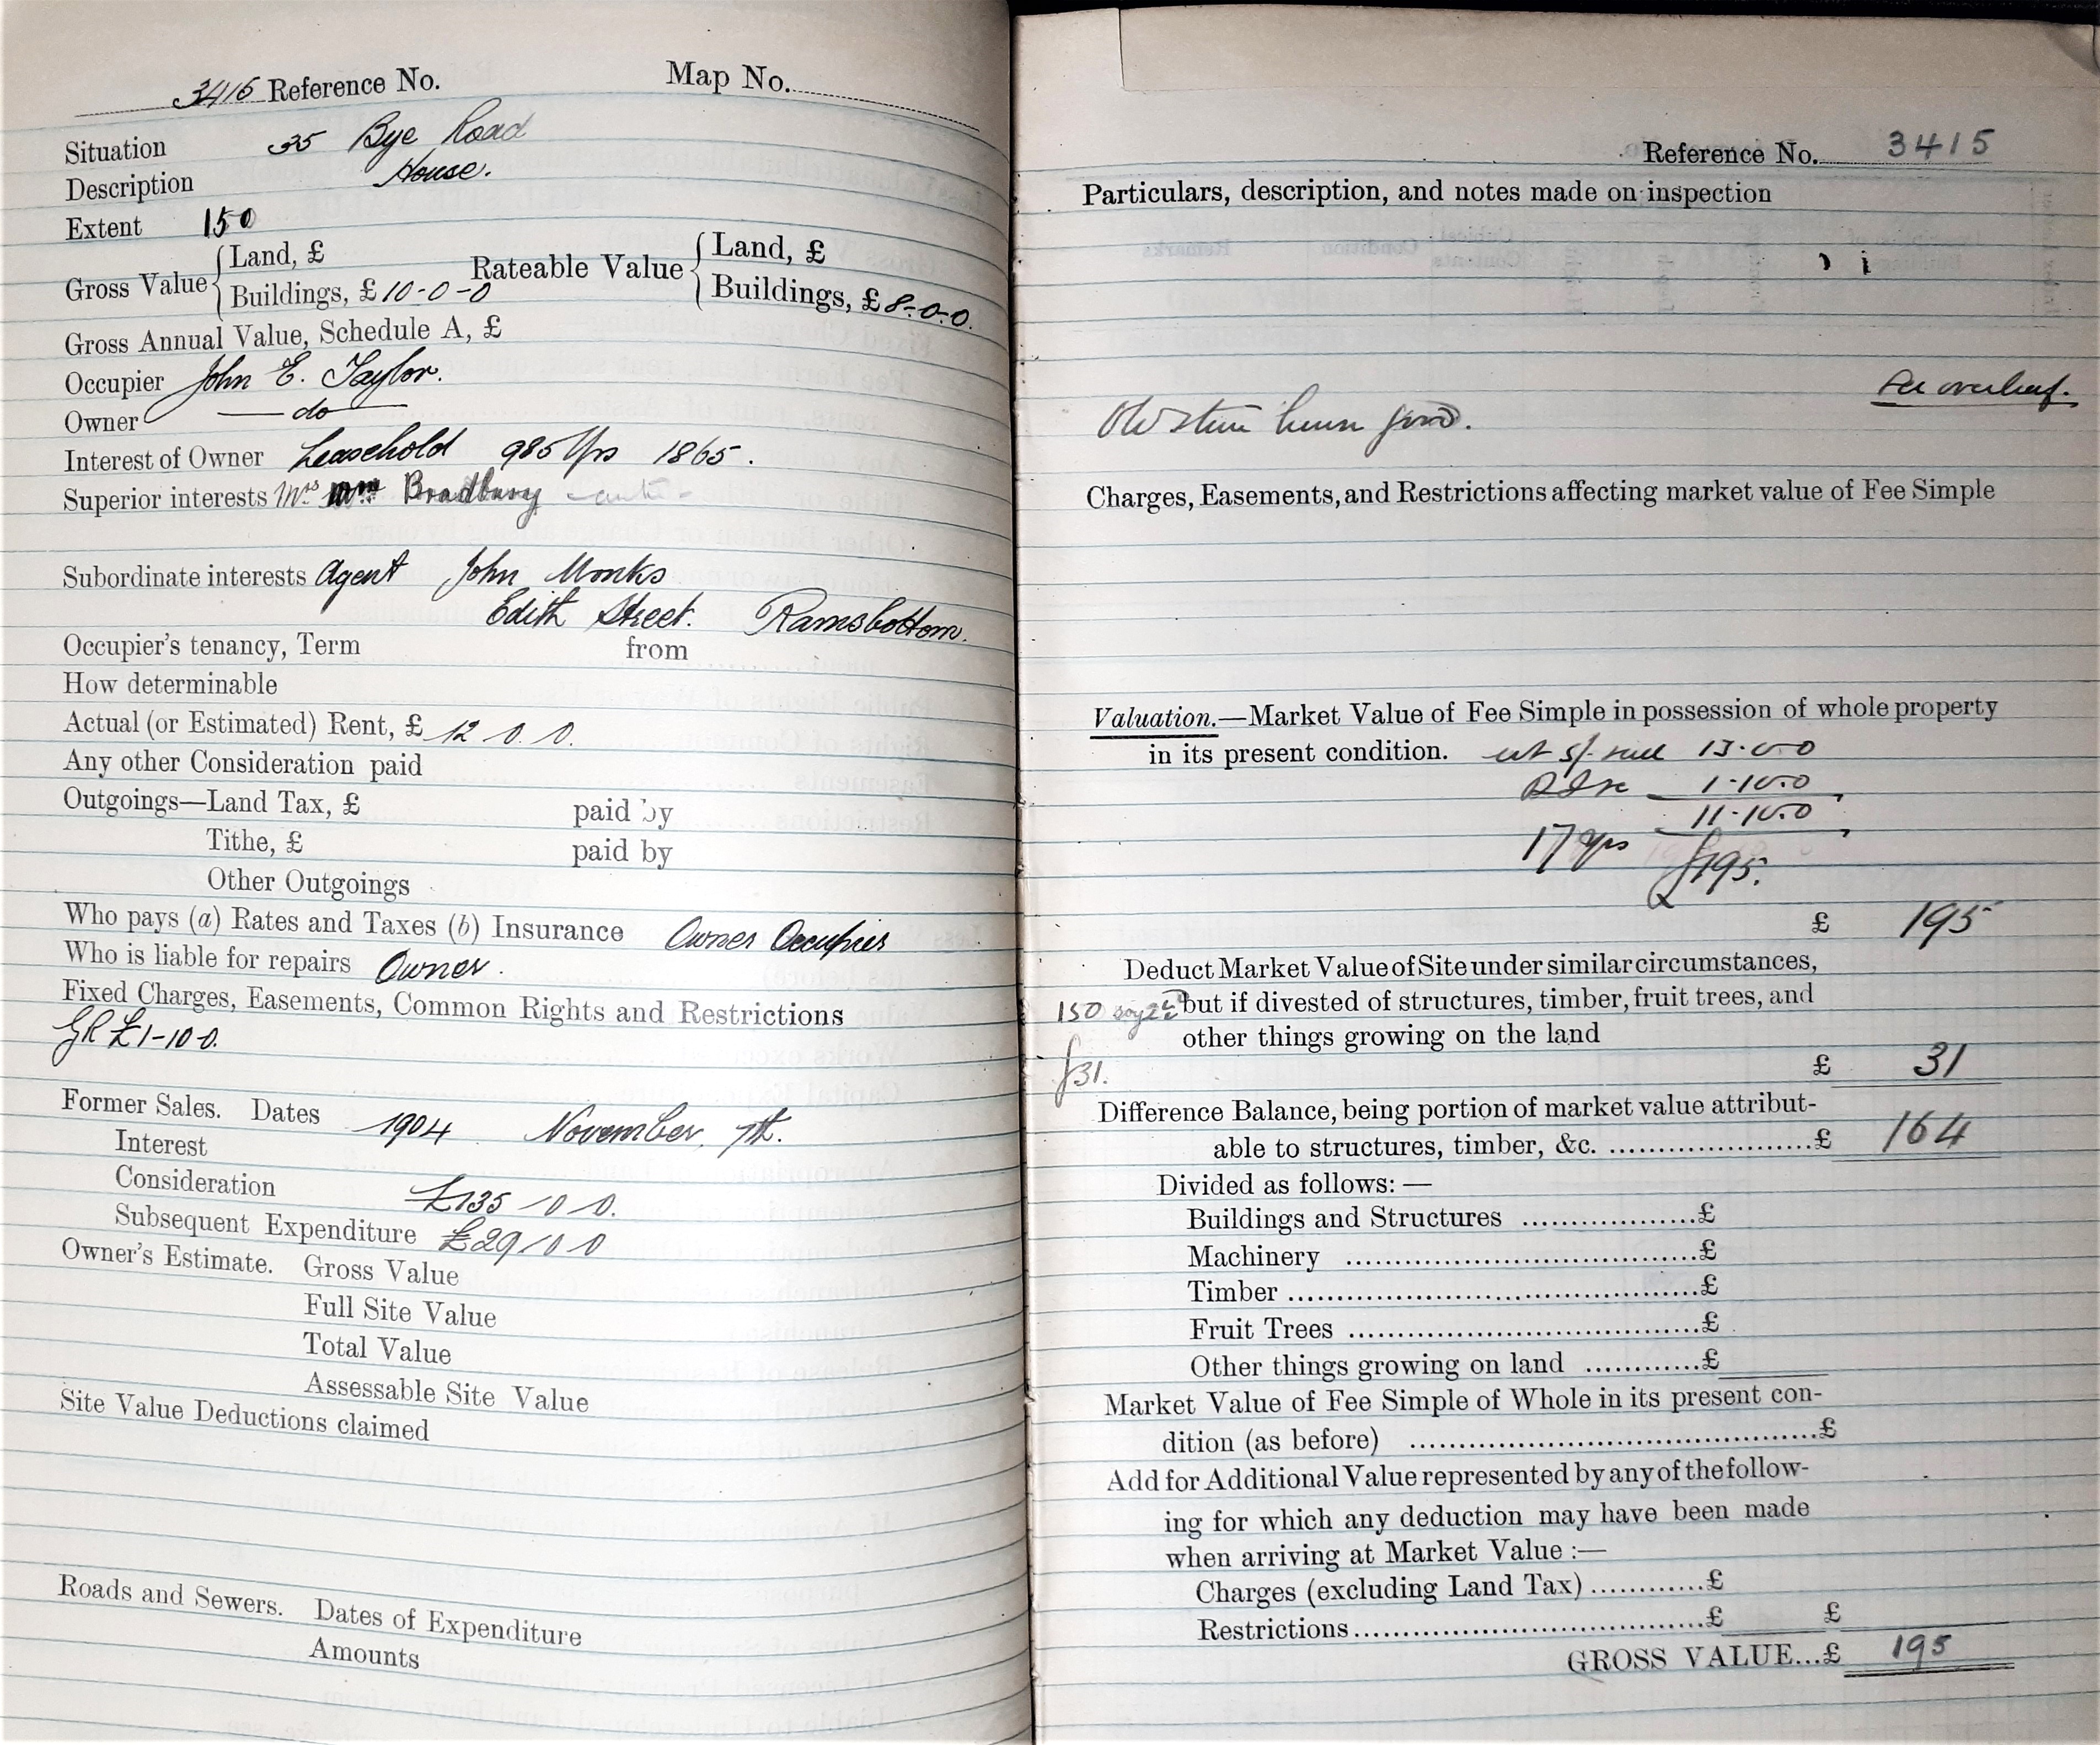 3415 Reference No. Map No.
Situation 35 Bye Road
Description House.
Extent 150
Gross Value { Land, £ Rateable Value { Land, £
Buildings, £ 10-0-0 Buildings, £ 8-0-0.
Gross Annual Value, Schedule A, £
Occupier John E. Taylor.
Owner — do —
Interest of Owner Leasehold 985 Yrs 1865.
Superior interests Mrs Bradbury
Subordinate interests Agent John Monks
Edith Street. Ramsbottom.
Occupier's tenancy, Term from
How determinable
Actual (or Estimated) Rent, £ 12 0. 0.
Any other Consideration paid
Outgoings—Land Tax, £ paid by
Tithe, £ paid by
Other Outgoings
Who pays (a) Rates and Taxes (b) Insurance Owner Occupier
Who is liable for repairs Owner.
Fixed Charges, Easements, Common Rights and Restrictions
GR £1-10-0.
Former Sales. Dates 1904 November. 7th.
Interest
Consideration £135-0-0.
Subsequent Expenditure £29-0-0
Owner's Estimate. Gross Value
Full Site Value
Total Value
Assessable Site Value
Site Value Deductions claimed
Roads and Sewers. Dates of Expenditure
Amounts
Reference No. 3415
Particulars, description, and notes made on inspection
See overleaf.
Old stone house good.
Charges, Easements, and Restrictions affecting market value of Fee Simple
Valuation.—Market Value of Fee Simple in possession of whole property
in its present condition. 13-0-0
1-10-0
11-10-0
17 yrs £195.
£ 195
Deduct Market Value of Site under similar circumstances,
150 but if divested of structures, timber, fruit trees, and
other things growing on the land
£31. £ 31
Difference Balance, being portion of market value attribut-
able to structures, timber, &c. ....................£ 164
Divided as follows: —
Buildings and Structures ..................£
Machinery ....................................£
Timber ..........................................£
Fruit Trees ....................................£
Other things growing on land ............£
Market Value of Fee Simple of Whole in its present con-
dition (as before) ..........................................£
Add for Additional Value represented by any of the follow-
ing for which any deduction may have been made
when arriving at Market Value :—
Charges (excluding Land Tax) ............£
Restrictions....................................£ £
GROSS VALUE...£ 195